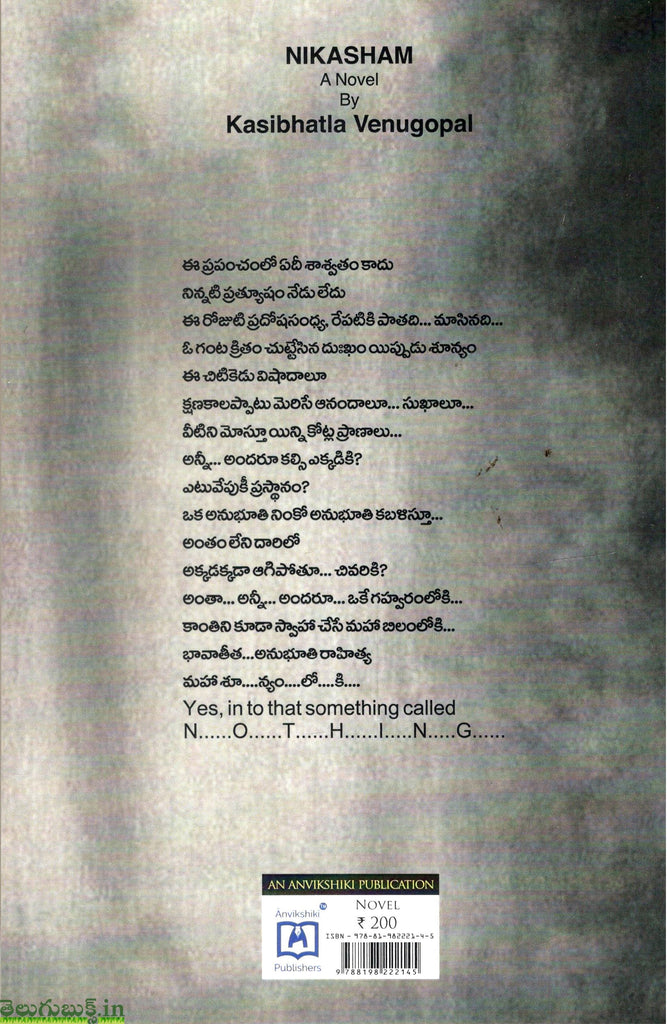 NIKASHAM
A Novel
By
Kasibhatla Venugopal
ఈ ప్రపంచంలో ఏదీ శాశ్వతం కాదు
నిన్నటి ప్రత్యూషం నేడు లేదు
ఈ రోజుటి ప్రదోషసంధ్య, రేపటికి పాతది... మాసినది...
ఓ గంట క్రితం చుట్టేసిన దుఃఖం యిప్పుడు శూన్యం
ఈ చిటికెడు విషాదాలూ
క్షణకాలప్పాటు మెరిసే ఆనందాలూ... సుఖాలూ...
వీటిని మోస్తూ యిన్ని కోట్ల ప్రాణాలు...
అన్నీ... అందరూ కల్సి ఎక్కడికి?
ఎటువేపుకీ ప్రస్థానం?
ఒక అనుభూతి నింకో అనుభూతి కబళిస్తూ...
అంతం లేని దారిలో
అక్కడక్కడా ఆగిపోతూ... చివరికి?
అంతా... అన్నీ... అందరూ... ఒకే గహ్వరంలోకి...
కాంతిని కూడా స్వాహా చేసే మహా బిలంలోకి...
భావాతీత...అనుభూతి రాహిత్య
మహా శూ....న్యం....లో....కి....
Yes, in to that something called
N......O......T......H......I.....N.....G......
AN ANVIKSHIKI PUBLICATION
Ānvikshiki TM
Publishers
NOVEL
₹ 200
ISBN - 978-81-982221-4-5
9 788198 222145
తెలుగుబుక్స్.in